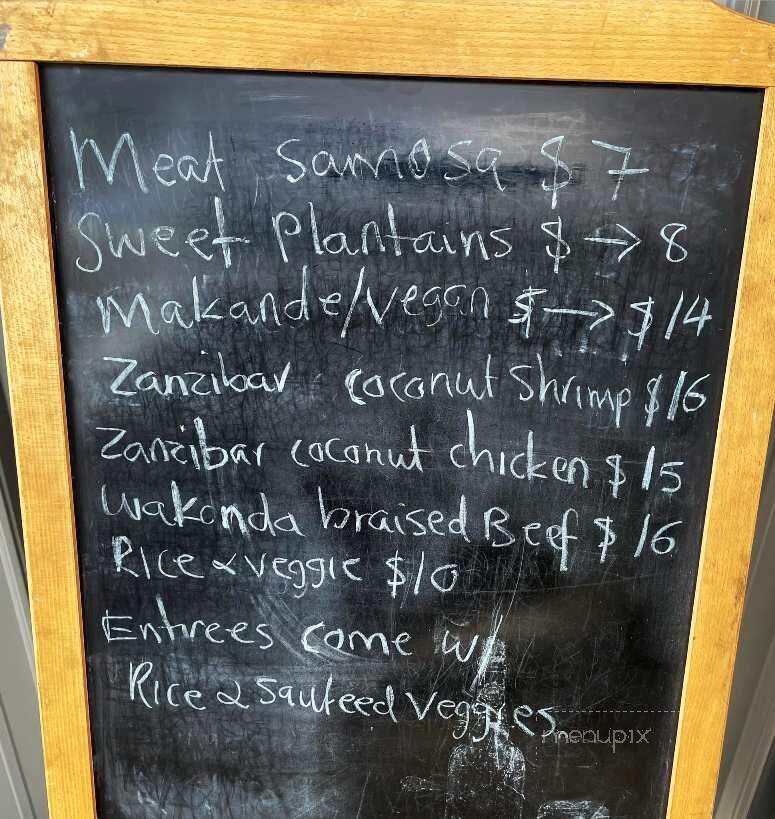 Meat Samosa $ 7
Sweet Plantains $ → 8
Makande/Vegan $ → $14
Zanzibar coconut Shrimp $16
Zanzibar coconut chicken $15
Wakanda braised Beef $16
Rice & veggie $10
Entrees come w/
Rice & Sauteed Veggies
menupix